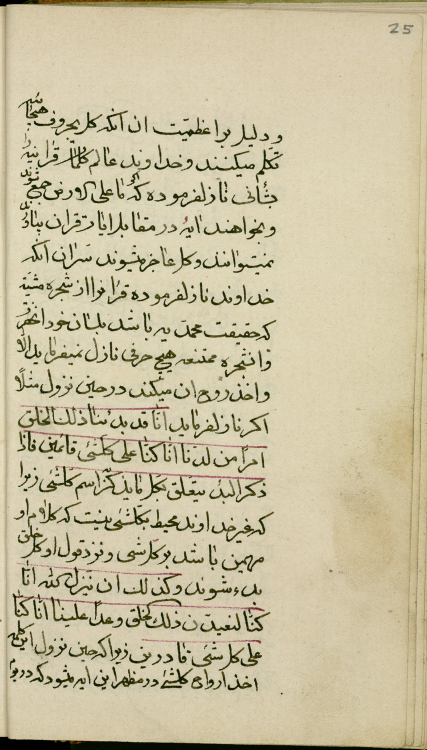 25
و دلیل بر اعظمیت ان انکه کل بحروف هجائیه
تکلم میکنند و خداوند عالم کلمات قرانیه را
بشانی نازل فرموده که ما علی الارض جمع شوند
و بخواهند ایه در مقابل ایات قران بیاورند
نمیتوانند و کل عاجز میشوند سر ان انکه
خداوند نازل فرموده قران را از شجره مشیة
که حقیقت محمدیه باشد بلسان خود انحضرت
و انشجره ممتنعه هیچ حرفی نازل نمیفرماید الا
و اخذ روح ان میکند در حین نزول مثلا
اکر نازل فرماید انا قد بدئنا ذلک الخلق
امرا من لدنا انا کنا علی کلشئ قائمین فاذا
ذکر البدء یتعلق بکل ما یذکر اسم کلشئ زیرا
که غیر خداوند محیط بکلشئ نیست که کلام او
مهیمن باشد بر کلشی و نزد قول او کل خلق
بدء شوند و کذلک ان نزل الله انا
کنا لنعیدن ذلک الخلق وعدا علینا انا کنا
علی کلشئ قادرین زیرا که حین نزول این کلمه
اخذ ارواح کلشئ در مظهر این ایه میشود که در یوم